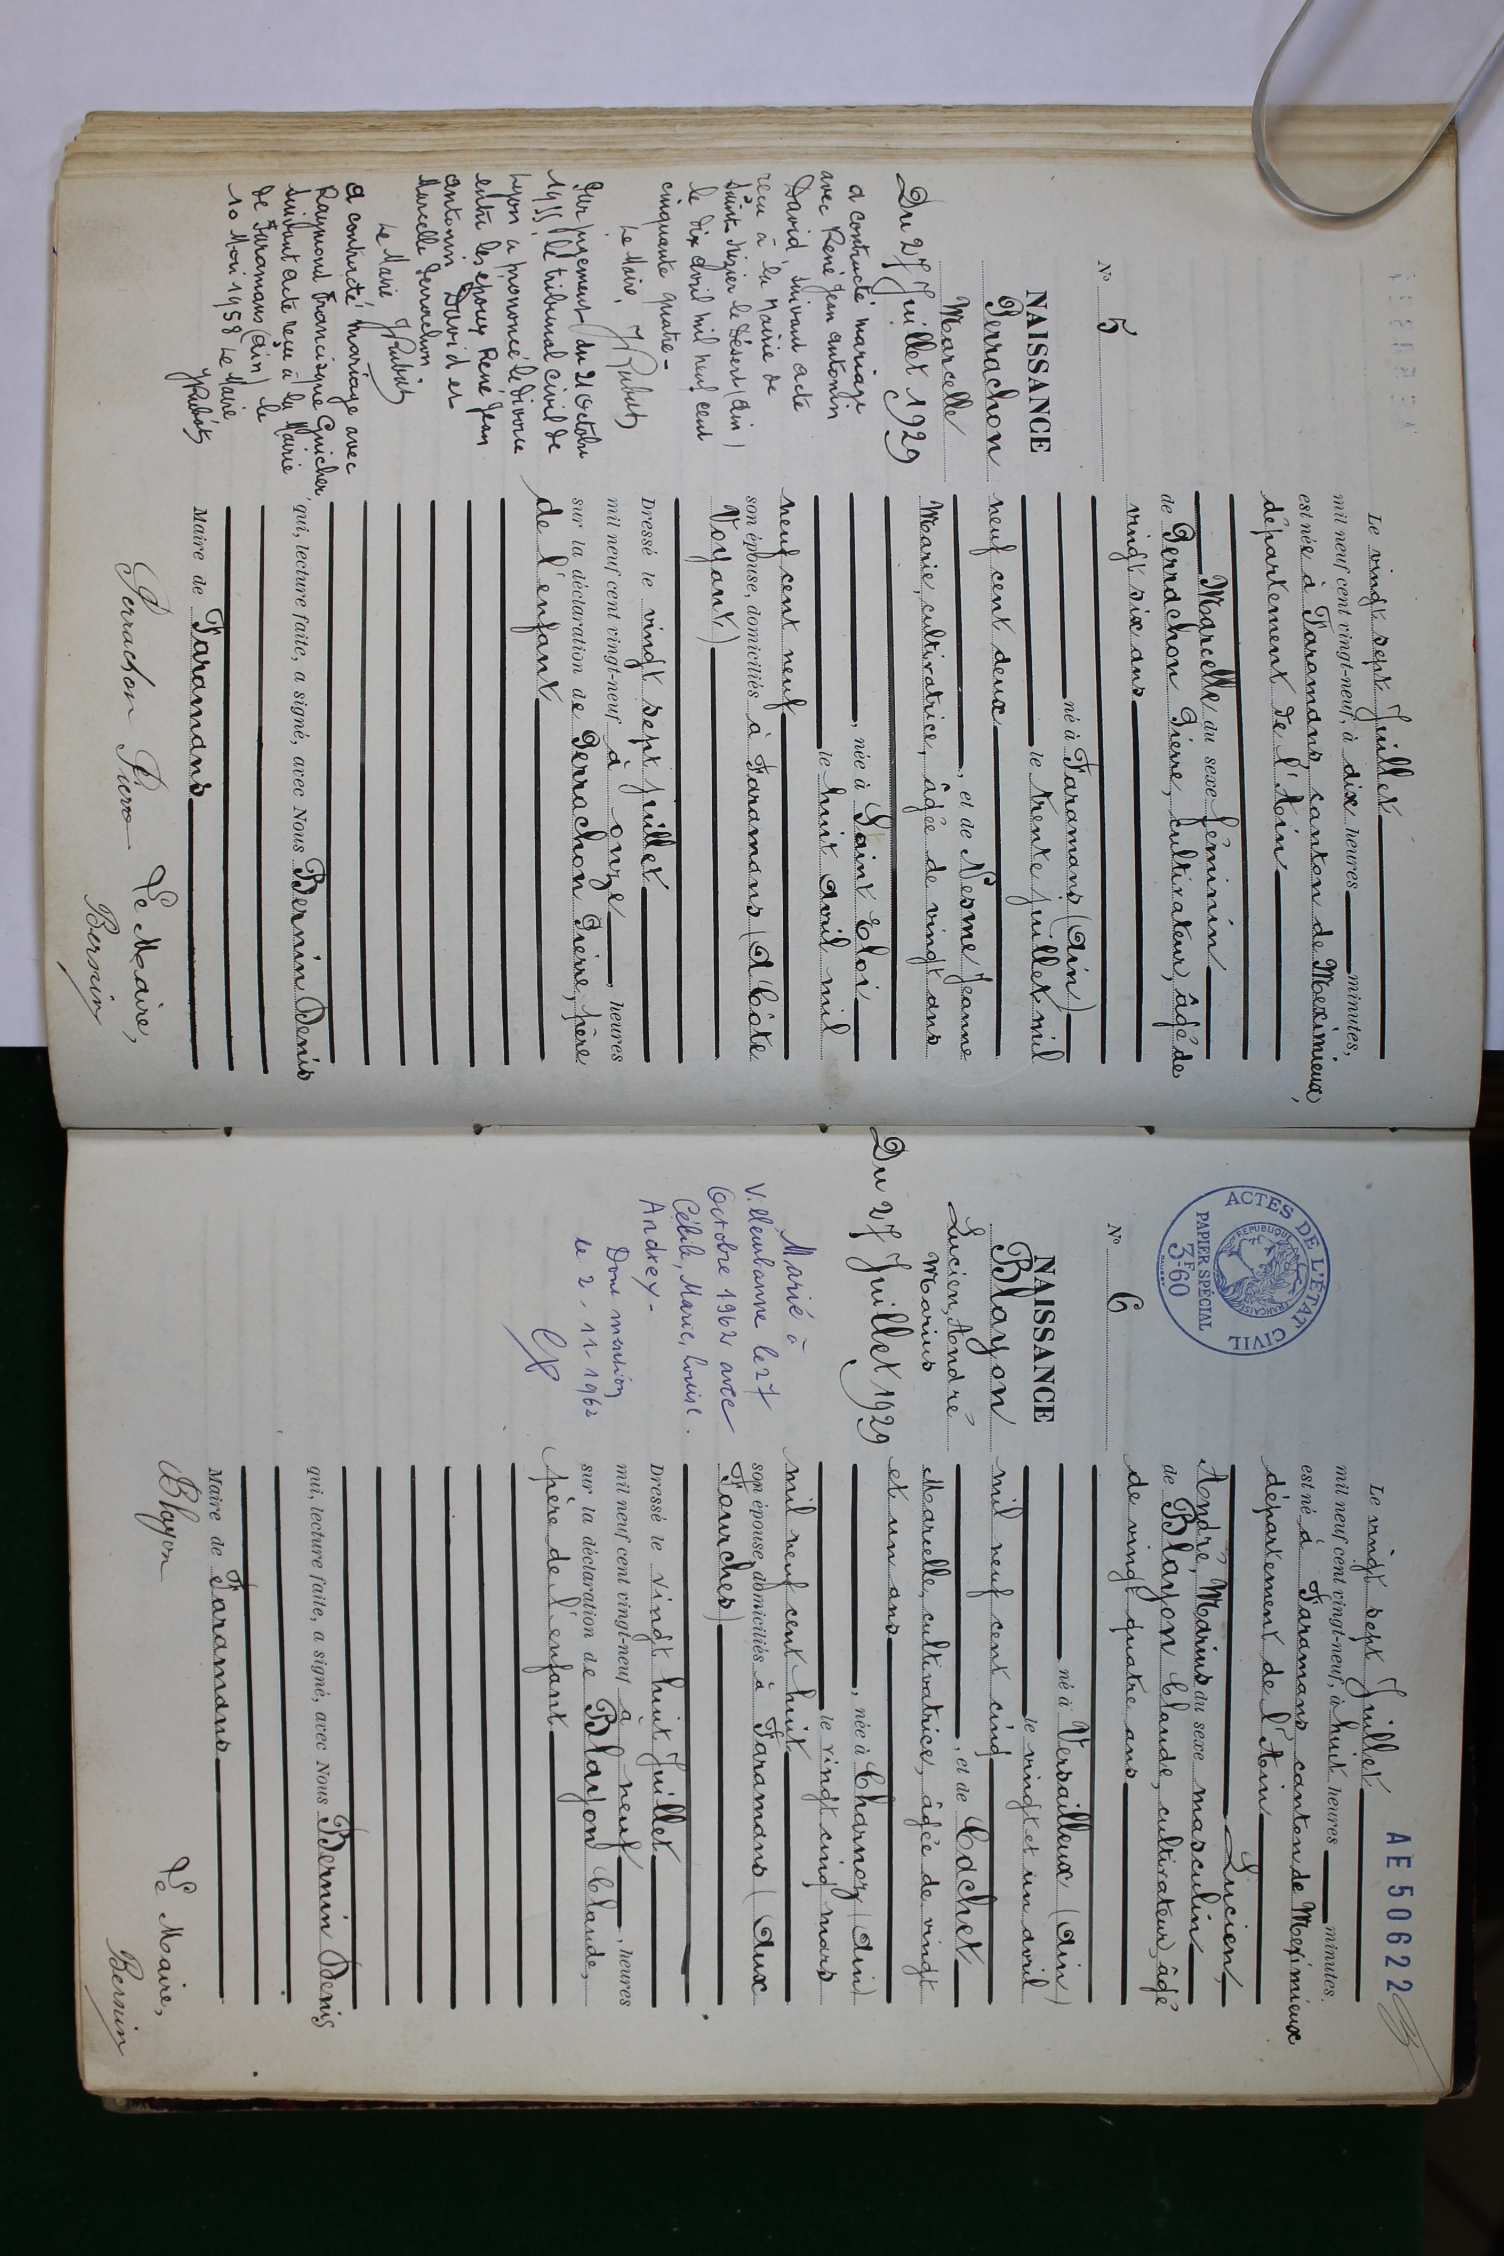 N° 5
NAISSANCE
Perrachon
Marcelle
Du 27 Juillet 1929
a contracté mariage
avec René Jean Antonin
David, suivant acte
reçu à la Mairie de
Saint Nizier le Désert (Ain)
le dix avril mil neuf cent
cinquante quatre -
Le Maire,
Par jugement du 21 Octobre
1955 le tribunal civil de
Lyon a prononcé le divorce
entre les époux René Jean
Antonin David et
Marcelle Perrachon.
Le Maire
a contracté mariage avec
Raymond Francisque Guicher
suivant acte reçu à la Mairie
de Faramans (Ain) le
10 Mai 1958 Le Maire
Le vingt sept Juillet
mil neuf cent vingt-neuf, à dix heures minutes,
est née à Faramans, canton de Meximieux,
département de l'Ain
Marcelle du sexe féminin
de Perrachon Pierre, cultivateur, âgé de
vingt six ans
né à Faramans (Ain)
le trente juillet mil
neuf cent deux
, et de Nesme Jeanne
Marie, cultivatrice, âgée de vingt ans
, née à Saint Eloi
le huit avril mil
neuf cent neuf
son épouse, domiciliés à Faramans (A Côte
Voyant)
Dressé le vingt sept juillet
mil neuf cent vingt-neuf à onze , heures
sur la déclaration de Perrachon Pierre, père
de l'enfant
qui, lecture faite, a signé, avec Nous Bernin Denis
Maire de Faramans
Perrachon Pierre Le Maire,
Bernin
ACTES DE L'ÉTAT CIVIL
RÉPUBLIQUE FRANÇAISE
PAPIER SPÉCIAL
3F60
AE50622
N° 6
NAISSANCE
Blayon
Lucien, André
Marius
Du 27 Juillet 1929
Marié à
Villeurbanne le 27
Octobre 1962 avec
Cécile, Marie, Louise.
Andrey -
Dont mention
le 2-11-1962
Le vingt sept Juillet
mil neuf cent vingt-neuf, à huit heures minutes,
est né à Faramans, canton de Meximieux
département de l'Ain
Lucien,
André, Marius du sexe masculin
de Blayon Claude, cultivateur, âgé
de vingt quatre ans
né à Versailleux (Ain)
le vingt et un avril
mil neuf cent cinq
, et de Cachet
Marcelle, cultivatrice, âgée de vingt
et un ans
, née à Charnoz (Ain)
le vingt cinq mars
mil neuf cent huit
son épouse, domiciliés à Faramans (Aux
Fourches)
Dressé le vingt huit Juillet
mil neuf cent vingt-neuf à neuf , heures
sur la déclaration de Blayon Claude,
père de l'enfant
qui, lecture faite, a signé, avec Nous Bernin Denis
Maire de Faramans
Blayon Le Maire,
Bernin